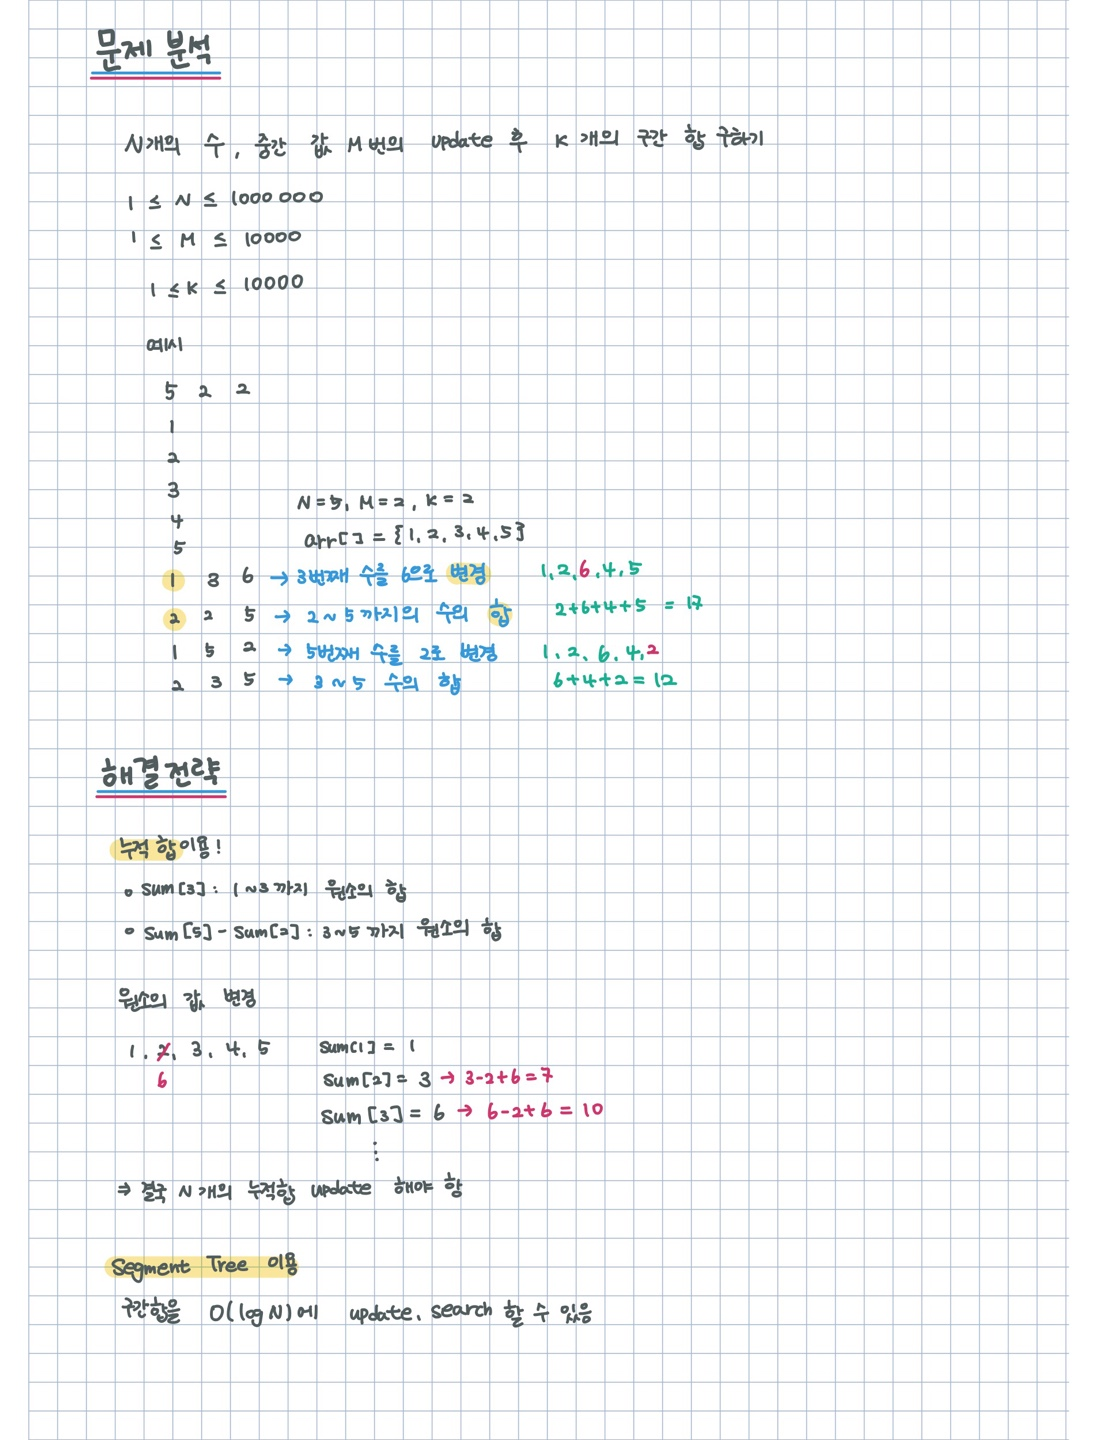 문제 분석
N개의 수, 중간 값 M번의 update 후 K 개의 구간 합 구하기
1 ≤ N ≤ 1000 000
1 ≤ M ≤ 10000
1 ≤ K ≤ 10000
예시
5 2 2
1
2
3
4
5
N = 5, M = 2, K = 2
arr[] = {1, 2, 3, 4, 5}
1 3 6 → 3번째 수를 6으로 변경 1, 2, 6, 4, 5
2 2 5 → 2~5 까지의 수의 합 2+6+4+5 = 17
1 5 2 → 5번째 수를 2로 변경 1, 2, 6, 4, 2
2 3 5 → 3~5 수의 합 6+4+2 = 12
해결전략
누적 합 이용!
• sum[3] : 1~3 까지 원소의 합
• sum[5] - sum[2] : 3~5 까지 원소의 합
원소의 값 변경
1, 2, 3, 4, 5 sum[1] = 1
6 sum[2] = 3 → 3-2+6 = 7
sum[3] = 6 → 6-2+6 = 10
⋮
⇒ 결국 N개의 누적합 update 해야 함
Segment Tree 이용
구간합을 O(log N)에 update, search 할 수 있음